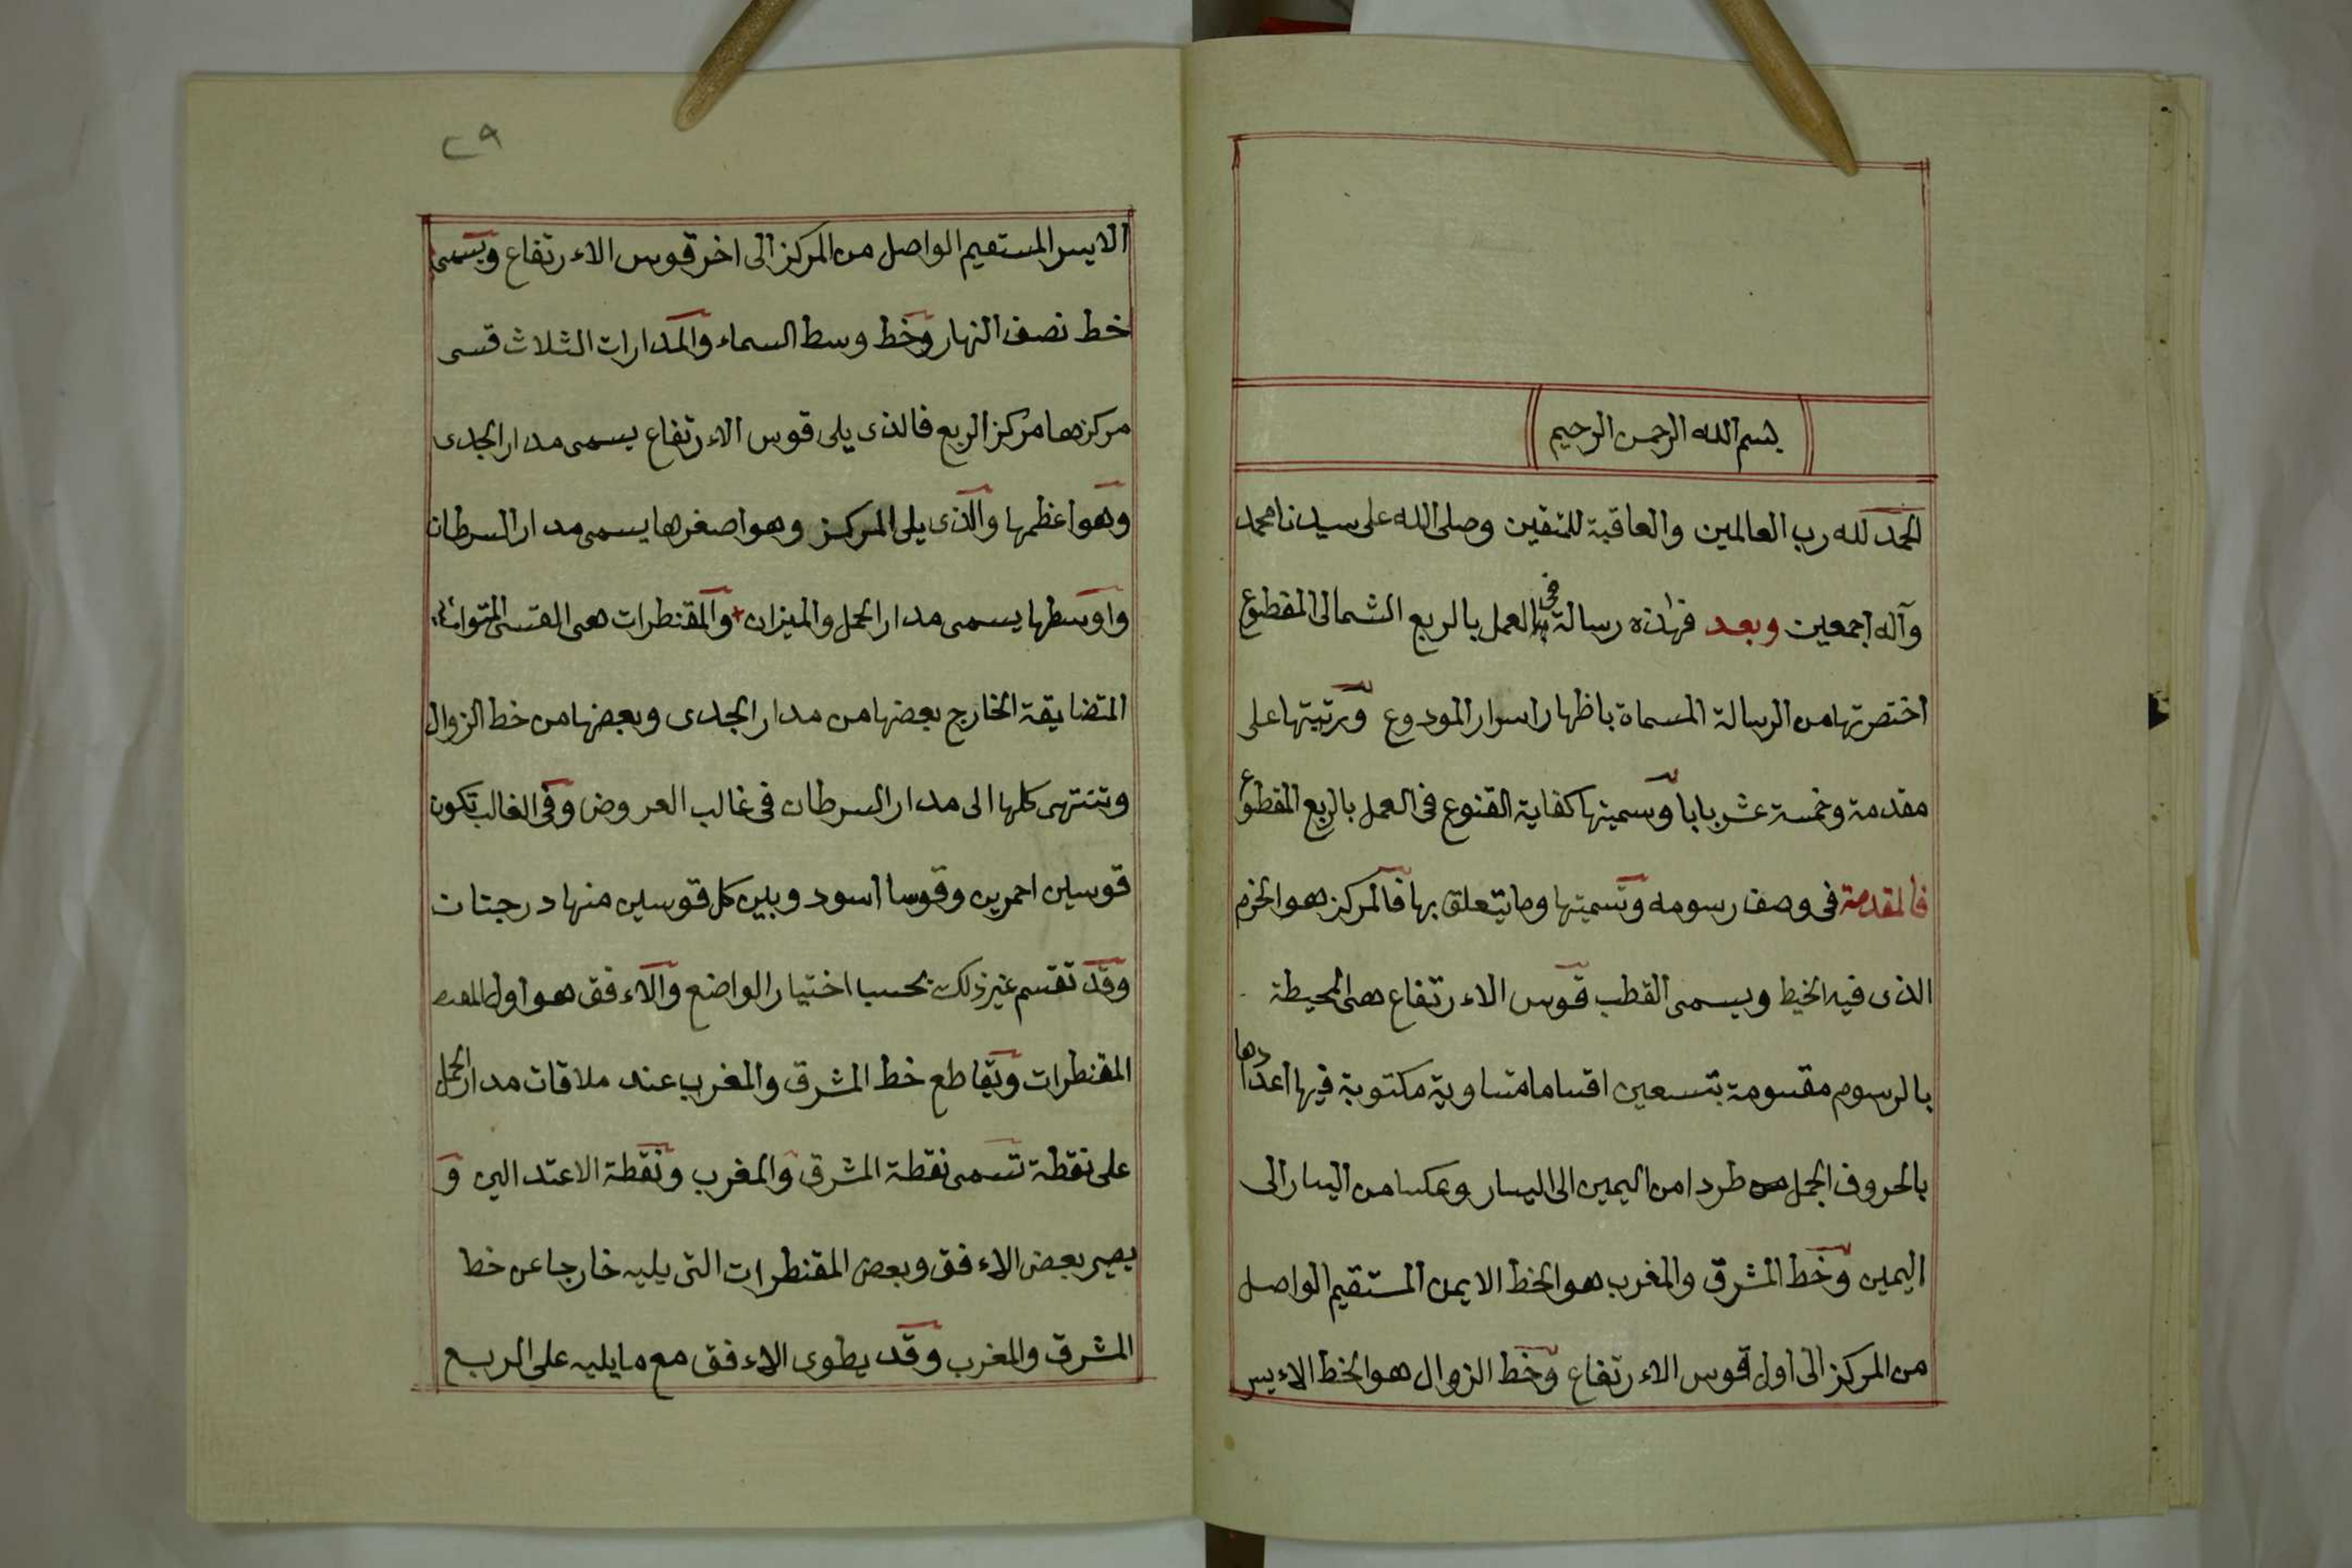 بسم الله الرحمن الرحيم
الحمد لله رب العالمين والعاقبة للمتقين وصلى الله على سيدنا محمد
وآله اجمعين وبعد فهذه رسالة في العمل بالربع الشمالى المقطوع
اختصرتها من الرسالة المسماة باظهار اسرار المودوع ورتبتها على
مقدمة وخمسة عشر بابا وسميتها كفاية القنوع فى العمل بالربع المقطوع
فالمقدمة فى وصف رسومه وتسميتها وما يتعلق بها فالمركز هو الخرم
الذى فيه الخيط ويسمى القطب قوس الاءرتفاع هى المحيطة
بالرسوم مقسومة بتسعين اقساما متساوية مكتوبة فيها اعدادها
بالحروف الجمل طردا من اليمين الى اليسار وعكسا من اليسار الى
اليمين وخط المشرق والمغرب هو الخط الايمن المستقيم الواصل
من المركز الى اول قوس الاءرتفاع وخط الزوال هو الخط الاءيسر
٢٩
الايسر المستقيم الواصل من المركز الى اخر قوس الاءرتفاع ويسمى
خط نصف النهار وخط وسط السماء والمدارات الثلاث قسى
مركزها مركز الربع فالذى يلى قوس الاءرتفاع يسمى مدار الجدى
وهو اعظمها والذى يلى المركز وهو اصغرها يسمى مدار السرطان
واوسطها يسمى مدار الحمل والميزان والمقنطرات هى القسى
المتضايقة الخارج بعضها من مدار الجدى وبعضها من خط الزوال
وتنتهى كلها الى مدار السرطان فى غالب العروض وفى الغالب تكون
قوسين احمرين وقوسا اسود وبين كل قوسين منها درجتان
وقد تقسم غير ذلك بحسب اختيار الواضع والاءفق هو اول
المقنطرات ويقاطع خط المشرق والمغرب عند ملاقات مدار الحمل
على نقطة تسمى نقطة المشرق والمغرب ونقطة الاعتدالين و
يصير بعض الاءفق وبعض المقنطرات التى يليه خارجا عن خط
المشرق والمغرب وقد يطوى الاءفق مع مايليه على الربع